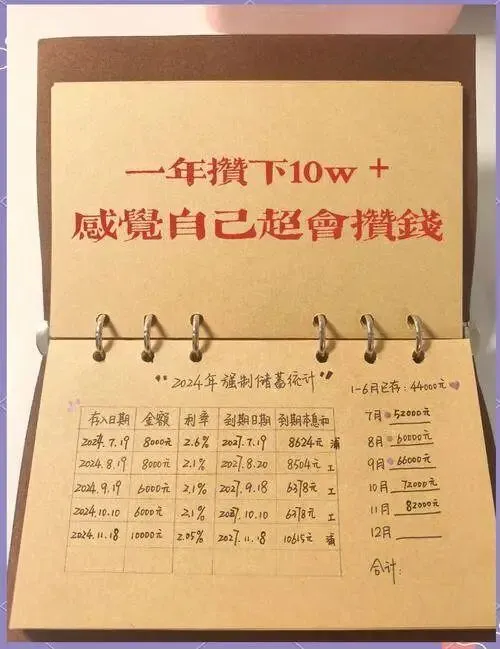 一年攢下10w+
感覺自己超會攢錢
"2024年强制储蓄统计"
存入日期 金额 利率 到期日期 到期本息和
2024.7.19 8000元 2.6% 2027.7.19 8624元 浦
2024.8.19 8000元 2.1% 2027.8.20 8504元 工
2024.9.19 6000元 2.1% 2027.9.18 6378元 工
2024.10.10 6000元 2.1% 2027.10.10 6378元 工
2024.11.18 10000元 2.05% 2027.11.18 10615元 浦
1-6月已存：44000元
7月 52000元
8月 60000元
9月 66000元
10月 72000元
11月 82000元
12月
合计：